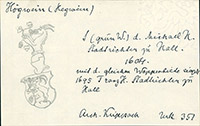 Högwein (Hegwein)
S (grün W) d. Michael H.
Stadtrichter zu Hall
1604.
mit d. gleichen Wappenbilde siegelt
1695 Franz H. Stadtrichter zu
Hall
Arch. Urk 351